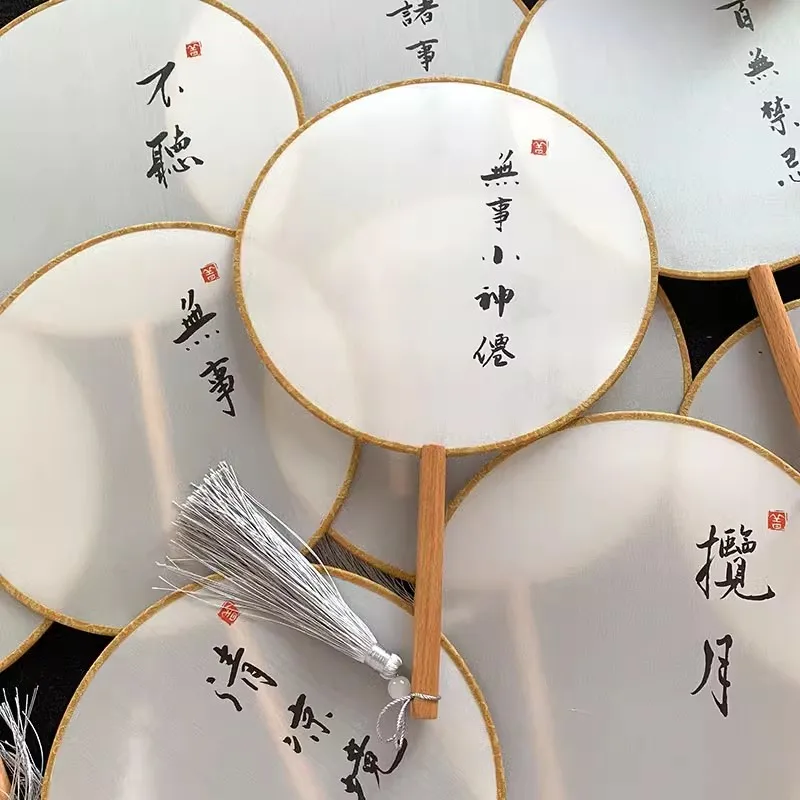 不聽
諸事
百無禁忌
無事小神僊
無事
攬月
清涼